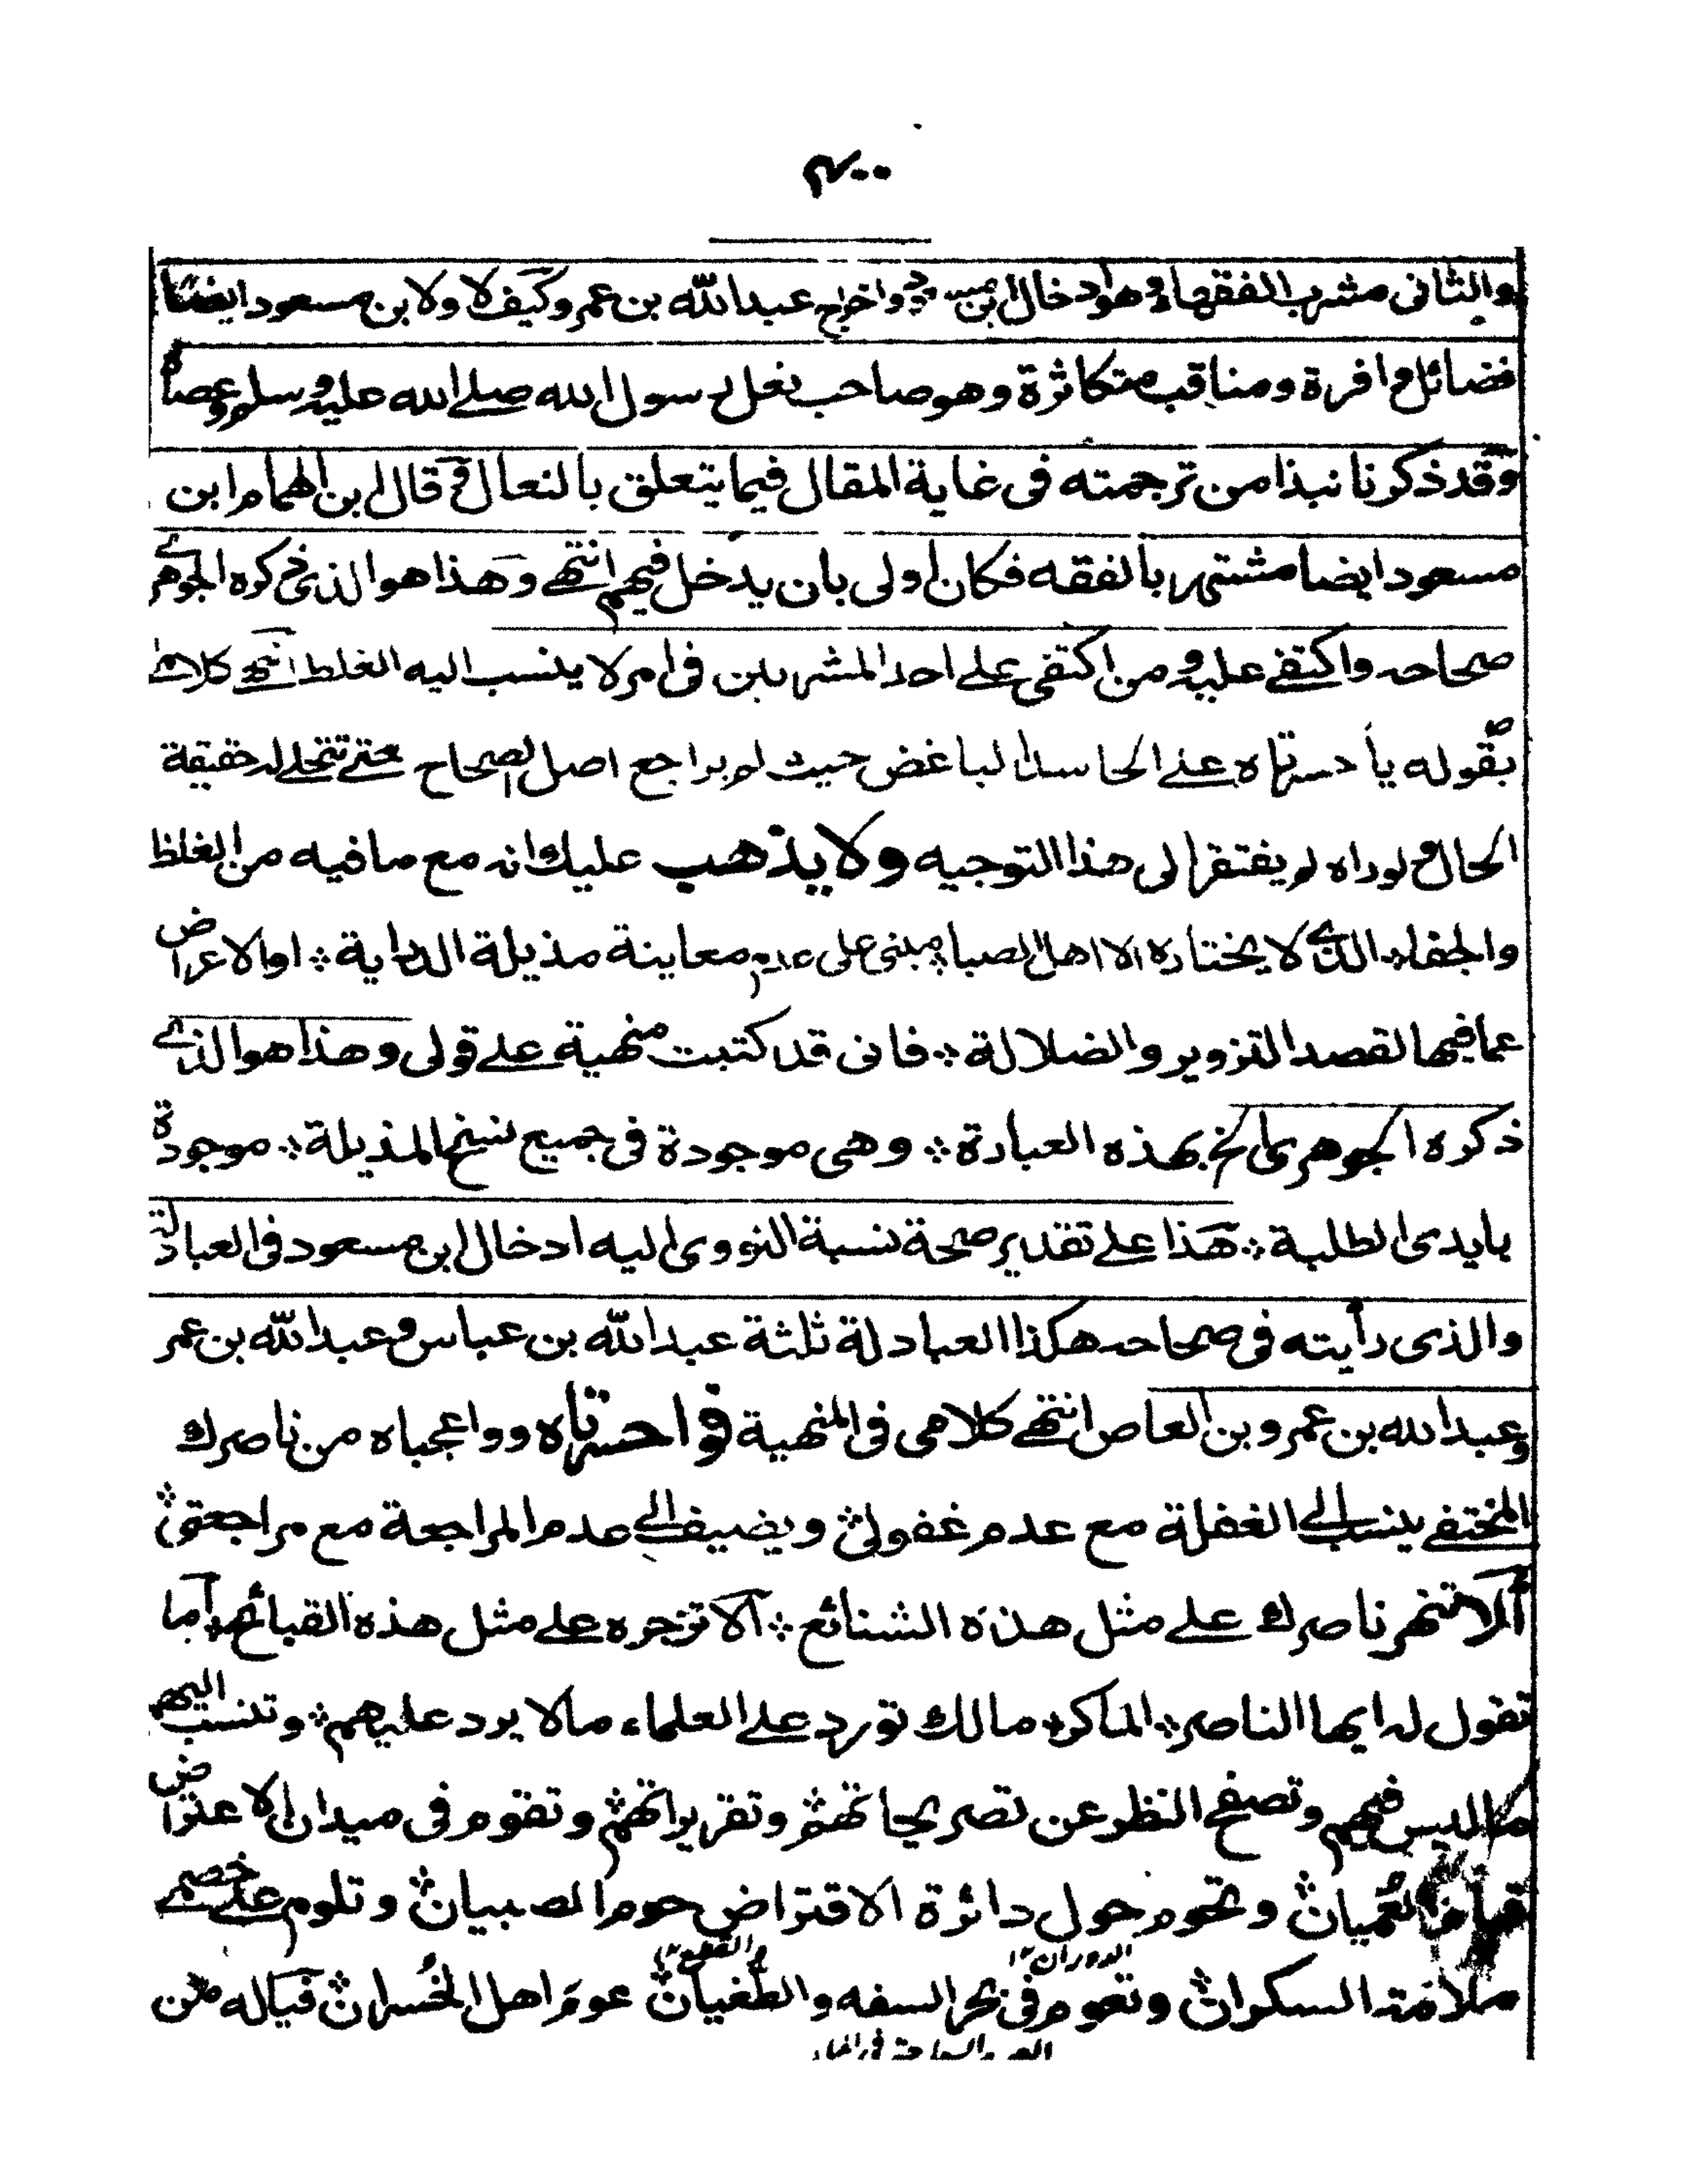 ۴۰۰
والثانى مشرب الفقهاء وهو ادخال ابن مسعود واخراج عبدالله بن عمرو كيف لا ولابن مسعود ايضا
فضائل وافرة ومناقب متكاثرة وهو صاحب نعل رسول الله صلے الله عليه وسلم وعصاه
وقد ذكرنا نبذا من ترجمته فى غاية المقال فيما يتعلق بالنعال وقد قال ابن الهمام ابن
مسعود ايضا مشتهر بالفقه فكان اولى بان يدخل فيهم انتهے وهذا هو الذى ذكره الجوهرے
صحاحه واكتفے عليه ومن اكتفى علے احد المشربين فى امر لا ينسب اليه الغلط انتهے كلامه
بقوله يا حسرتاه علے الحاسد الباغض حيث لم يراجع اصل الصحاح حتے تتجلے له حقيقة
الحال ولو راه لم يفتقر الى هذا التوجيه ولا يذهب عليك انه مع ما فيه من الغلظ
والجفاء الذے لا يختاره الا اهل الصبا مبنى على عدم معاينة مذيلة الدراية ؞ او الاعراض
عما فيها لقصد التزوير والضلالة ؞ فانى قد كتبت منهية علے قولى وهذا هو الذے
ذكره الجوهرى الخ بهذه العبارة ؞ وهى موجودة فى جميع نسخ المذيلة ؞ موجودة
بايدى الطلبة ؞ هذا علے تقدير صحة نسبة النووى اليه ادخال ابن مسعود فى العبادلة
والذى رأيته فى صحاحه هكذا العبادلة ثلثة عبدالله بن عباس وعبدالله بن عمر
وعبدالله بن عمرو بن العاص انتهے كلامى فى المنهية فوا حسرتاه ووا عجباه من ناصرك
المختفے ينسب الے الغفلة مع عدم غفولى ؞ ويضيف الے عدم المراجعة مع مراجعتى ؞
ألا تنهر ناصرك علے مثل هذه الشنائع ؞ ألا تزجره علے مثل هذه القبائح ؞ أما
تقول له ايها الناصر ؞ الماكر ؞ مالك تورد علے العلماء مالا يرد عليهم ؞ وتنسب اليهم
ما ليس فيهم وتصفح النظر عن تصريحاتهم ؞ وتقريراتهم ؞ وتقوم فى ميدان الاعتراض
قيام العميان ؞ وتحوم حول دائرة الاقتراض حوم الصبيان ؞ وتلوم علے خصمے
ملامة السكران ؞ وتعوم فى بحر السفه والطغيان ؞ عوم اهل الخسران ؞ فياله من
الدوران ١٢